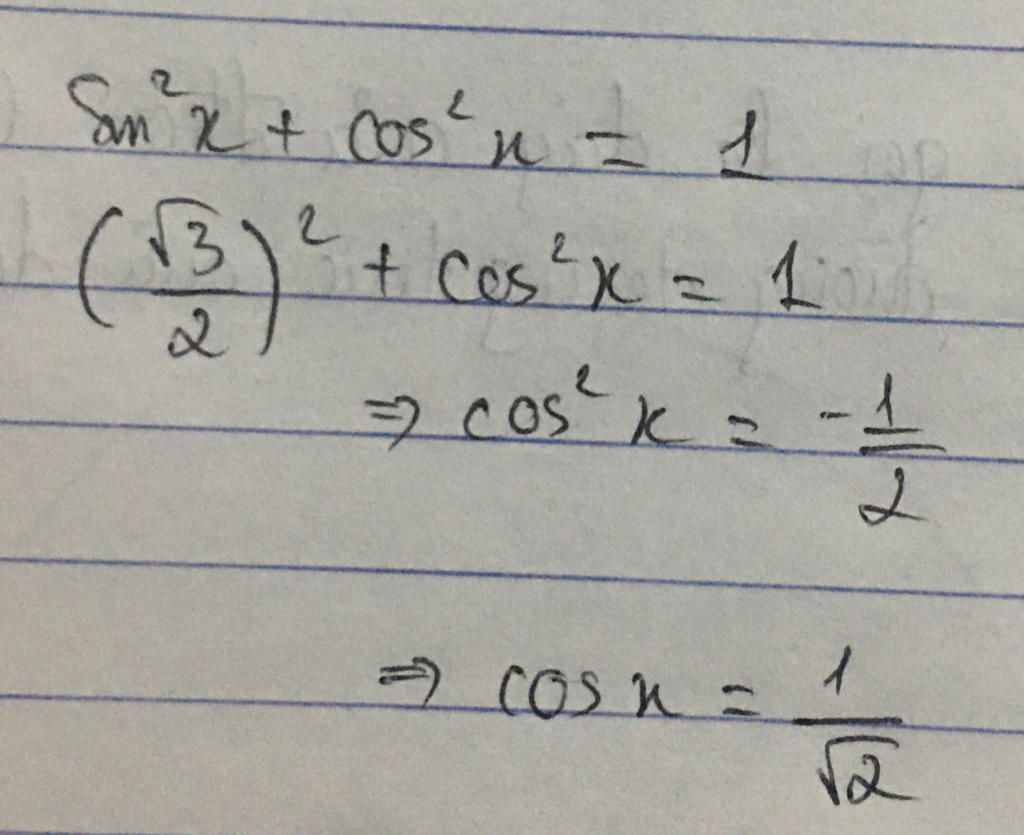 Sin²x + cos²x = 1
(√3/2)² + cos²x = 1
⇒ cos²x = -1/2
⇒ cos x = 1/√2